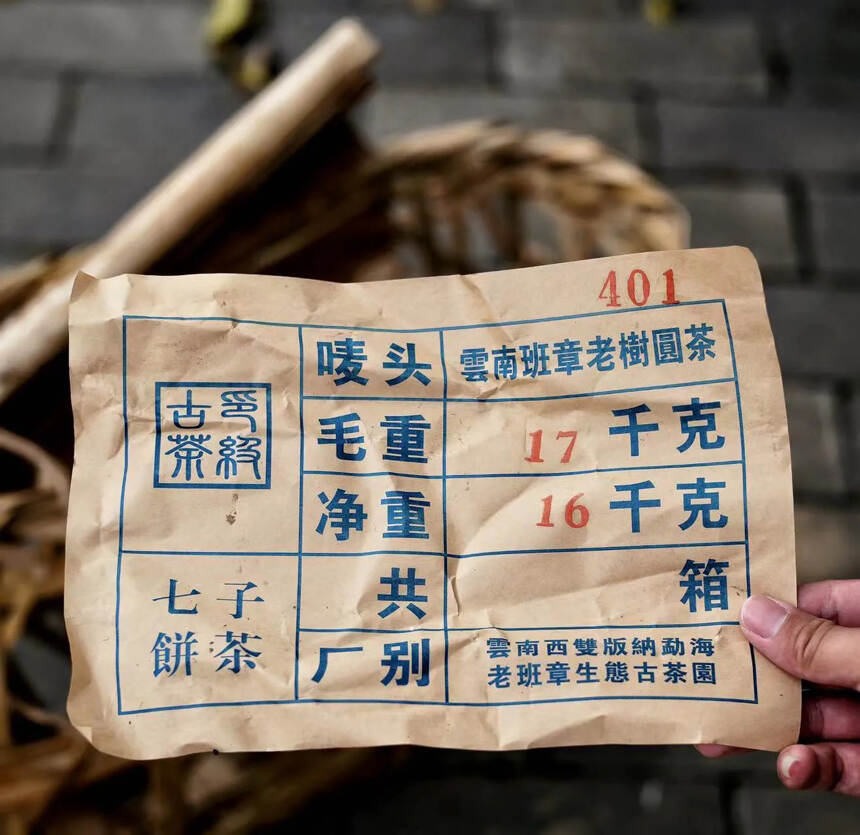 401
印級
古茶
七子
餅茶
唛头 雲南班章老樹圓茶
毛重 17 千克
净重 16 千克
共 箱
厂别 雲南西雙版納勐海
老班章生態古茶園